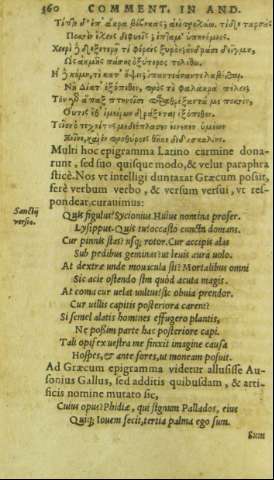 360 COMMENT. IN AND.
Τίπτε δ' ἐπ' ἄκρα βέβηκας; ἀεὶ τροχάω. τί δὲ ταρσοὺς
Ποσσὶν ἔχεις διφυεῖς; ἵπταμ' ὑπηνέμιος.
Χειρὶ δὲ δεξιτερῇ τί φέρεις ξυρόν; ἀνδράσι δεῖγμα,
Ὡς ἀκμῆς πάσης ὀξύτερος τελέθω.
Ἡ κόμη, τί κατ' ὄψιν;
Νὴ Δία τ' ἐξόπιθεν, πρὸς τί φαλακρὰ πέλει;
Τὸν ἅπαξ πτηνοῖσι με ποσσὶν,
Οὔτις ἔθ' ἱμείρων δράξεται ἐξόπιθεν.
ὁ τεχνίτης εἵνεκεν ὑμέων
Ξεῖνε, καὶ ἐν προθύροις θῆκε διδασκαλίην.
Multi hoc epigramma Latino carmine dona-
runt, sed suo quisque modo, & velut paraphra
sticè. Nos vt intelligi duntaxat Græcum possit,
ferè verbum verbo, & versum versui, vt res-
pondeat curauimus:
Sanctij
versio.
Quis figulus? Sycionius. Huius nomina profer.
Lysippus. Quis tu? occasio cuncta domans.
Cur pinnis stas? vsq; rotor. Cur accipis alas
Sub pedibus geminas? vt leuis aura volo.
At dextra unde nouacula sit? Mortalibus omni
Sic acie ostendo sim quòd acuta magis.
At coma cur velat vultus? sic obuia prendor.
Cur vllis capitis posteriora carent?
Si semel alatis homines effugero plantis,
Ne possim parte hac posteriore capi.
Tali opifex vestra me finxit imagine causa
Hospes, & ante fores, ut moneam posuit.
Ad Græcum epigramma videtur allusisse Au-
sonius Gallus, sed additis quibusdam, & arti-
ficis nomine mutato sic,
Cuius opus? Phidiæ, qui signum Pallados, eius
Quiq; Iouem fecit, tertia palma ego sum.
Sum